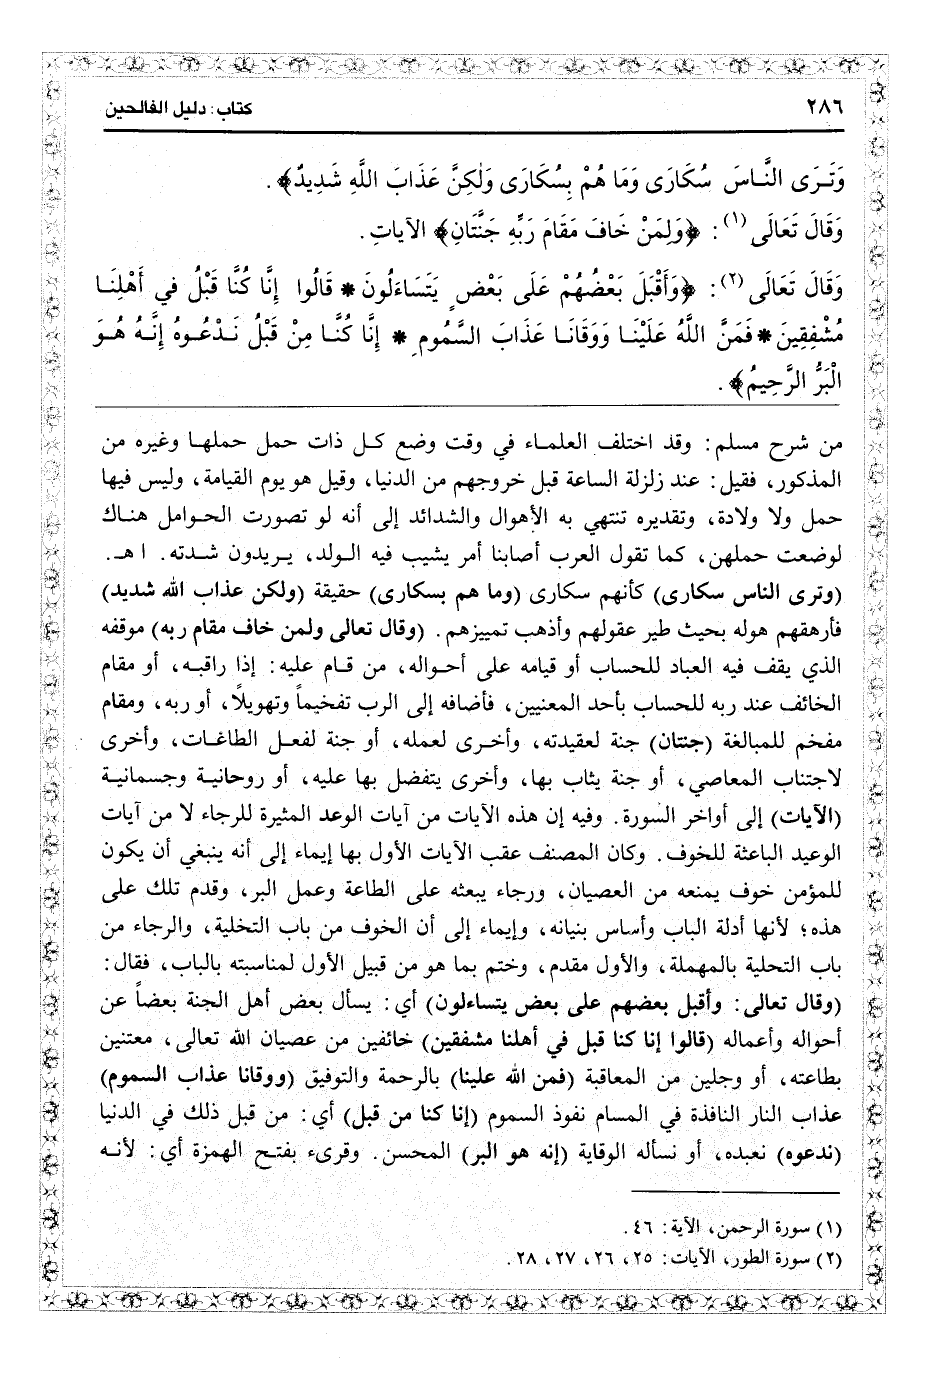 ٢٨٦
كتاب: دليل الفالحين
وَتَرَى النَّاسَ سُكَارَى وَمَا هُمْ بِسُكَارَى وَلٰكِنَّ عَذَابَ اللَّهِ شَدِيدٌ﴾ .
وَقَالَ تَعَالَى (١) : ﴿وَلِمَنْ خَافَ مَقَامَ رَبِّهِ جَنَّتَانِ﴾ الآيَاتِ .
وَقَالَ تَعَالَى (٢) : ﴿وَأَقْبَلَ بَعْضُهُمْ عَلَى بَعْضٍ يَتَسَاءَلُونَ * قَالُوا إِنَّا كُنَّا قَبْلُ في أَهْلِنَا
مُشْفِقِينَ * فَمَنَّ اللَّهُ عَلَيْنَا وَوَقَانَا عَذَابَ السَّمُومِ * إِنَّا كُنَّا مِنْ قَبْلُ نَدْعُوهُ إِنَّهُ هُوَ
الْبَرُّ الرَّحِيمُ﴾ .
من شرح مسلم: وقد اختلف العلماء في وقت وضع كل ذات حمل حملها وغيره من
المذكور، فقيل: عند زلزلة الساعة قبل خروجهم من الدنيا، وقيل هو يوم القيامة، وليس فيها
حمل ولا ولادة، وتقديره تنتهي به الأهوال والشدائد إلى أنه لو تصورت الحوامل هناك
لوضعت حملهن، كما تقول العرب أصابنا أمر يشيب فيه الولد، يريدون شدته. اهـ.
(وترى الناس سكارى) كأنهم سكارى (وما هم بسكارى) حقيقة (ولكن عذاب الله شديد)
فأرهقهم هوله بحيث طير عقولهم وأذهب تمييزهم. (وقال تعالى ولمن خاف مقام ربه) موقفه
الذي يقف فيه العباد للحساب أو قيامه على أحواله، من قام عليه: إذا راقبه، أو مقام
الخائف عند ربه للحساب بأحد المعنيين، فأضافه إلى الرب تفخيماً وتهويلاً، أو ربه، ومقام
مفخم للمبالغة (جنتان) جنة لعقيدته، وأخرى لعمله، أو جنة لفعل الطاعات، وأخرى
لاجتناب المعاصي، أو جنة يثاب بها، وأخرى يتفضل بها عليه، أو روحانية وجسمانية
(الآيات) إلى أواخر السورة. وفيه إن هذه الآيات من آيات الوعد المثيرة للرجاء لا من آيات
الوعيد الباعثة للخوف. وكان المصنف عقب الآيات الأول بها إيماء إلى أنه ينبغي أن يكون
للمؤمن خوف يمنعه من العصيان، ورجاء يبعثه على الطاعة وعمل البر، وقدم تلك على
هذه؛ لأنها أدلة الباب وأساس بنيانه، وإيماء إلى أن الخوف من باب التخلية، والرجاء من
باب التحلية بالمهملة، والأول مقدم، وختم بما هو من قبيل الأول لمناسبته بالباب، فقال:
(وقال تعالى: وأقبل بعضهم على بعض يتساءلون) أي: يسأل بعض أهل الجنة بعضاً عن
أحواله وأعماله (قالوا إنا كنا قبل في أهلنا مشفقين) خائفين من عصيان الله تعالى، معتنين
بطاعته، أو وجلين من المعاقبة (فمن الله علينا) بالرحمة والتوفيق (ووقانا عذاب السموم)
عذاب النار النافذة في المسام نفوذ السموم (إنا كنا من قبل) أي: من قبل ذلك في الدنيا
(ندعوه) نعبده، أو نسأله الوقاية (إنه هو البر) المحسن. وقرىء بفتح الهمزة أي: لأنه
(١) سورة الرحمن، الآية: ٤٦ .
(٢) سورة الطور، الآيات: ٢٥، ٢٦، ٢٧، ٢٨ .